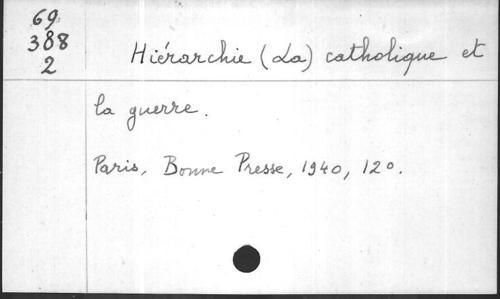 69
388
2
Hiérarchie (La) catholique et
la guerre.
Paris, Bonne Presse, 1940, 12°.